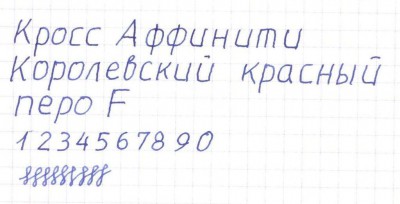 Кросс Аффинити
Королевский красный
перо F
1 2 3 4 5 6 7 8 9 0